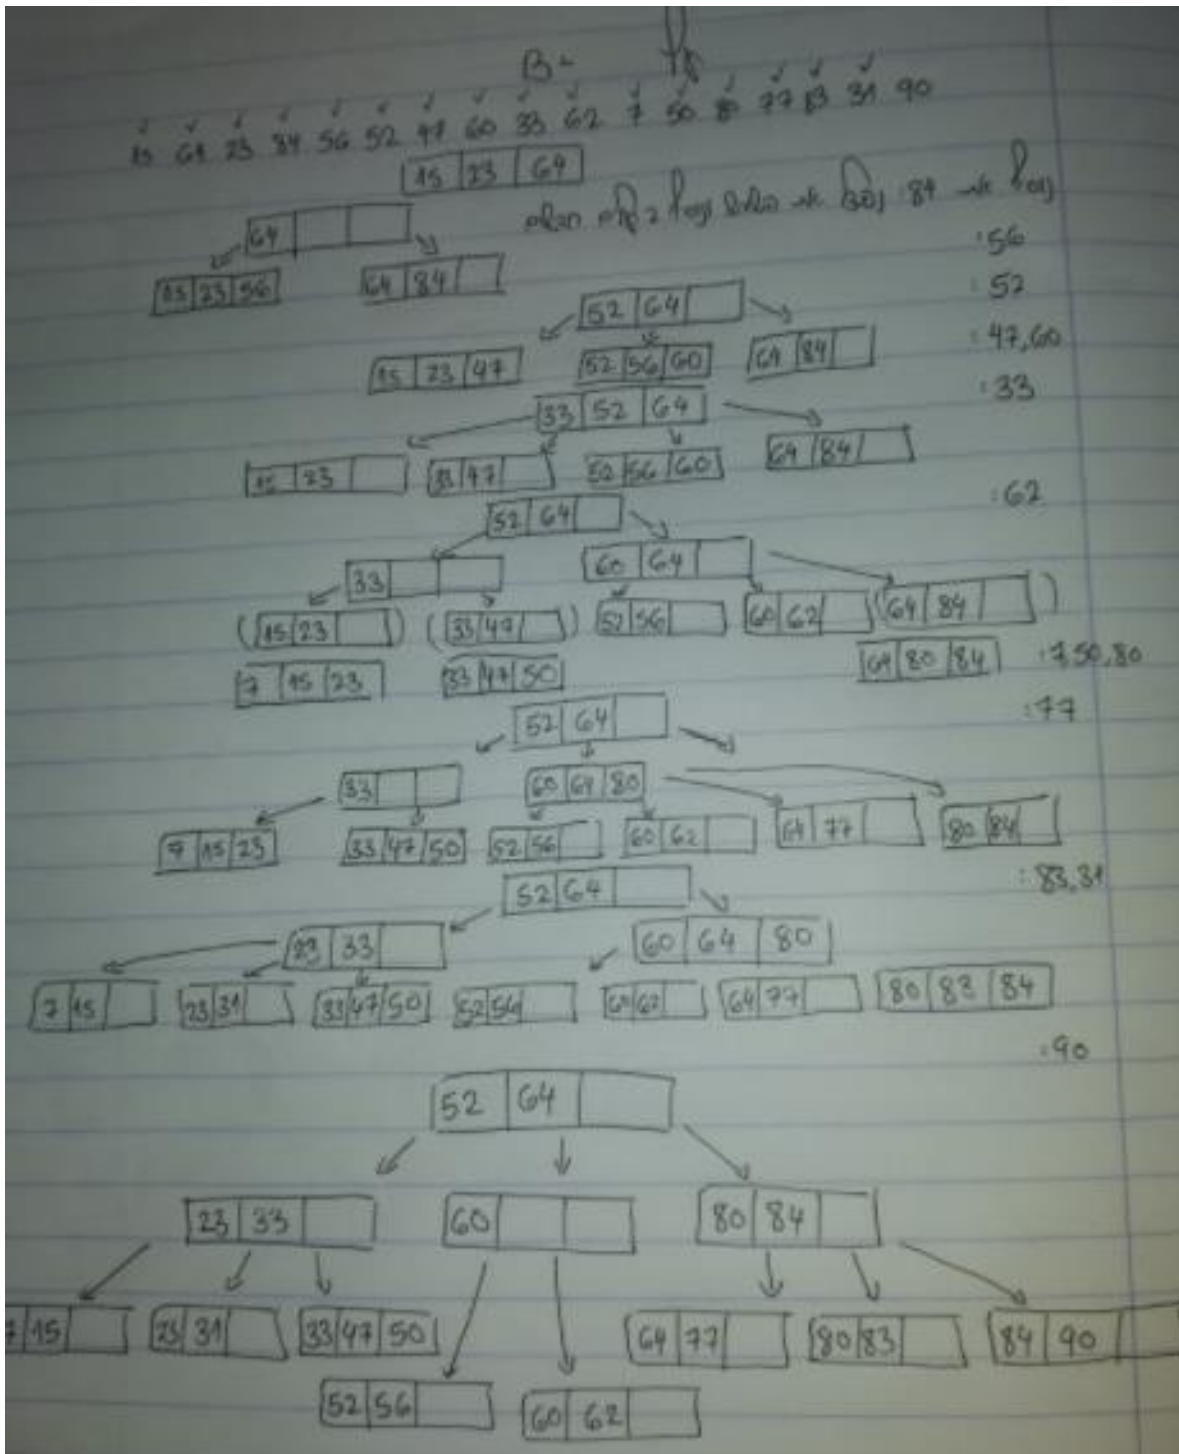 B-
15 64 23 84 56 52 47 60 33 62 7 50 80 77 83 31 90
15 23 64
84
64
:56
15 23 56 64 84
:52
52 64
:47,60
15 23 47 52 56 60 64 84
:33
33 52 64
15 23 33 47 52 56 60 64 84
:62
52 64
33 60 64
(15 23) (33 47) 52 56 60 62 (64 84)
7 15 23 33 47 50 64 80 84 :7,50,80
:77
52 64
33 60 64 80
7 15 23 33 47 50 52 56 60 62 64 77 80 84
:83,31
52 64
23 33 60 64 80
7 15 23 31 33 47 50 52 56 60 62 64 77 80 83 84
:90
52 64
23 33 60 80 84
7 15 23 31 33 47 50 64 77 80 83 84 90
52 56 60 62